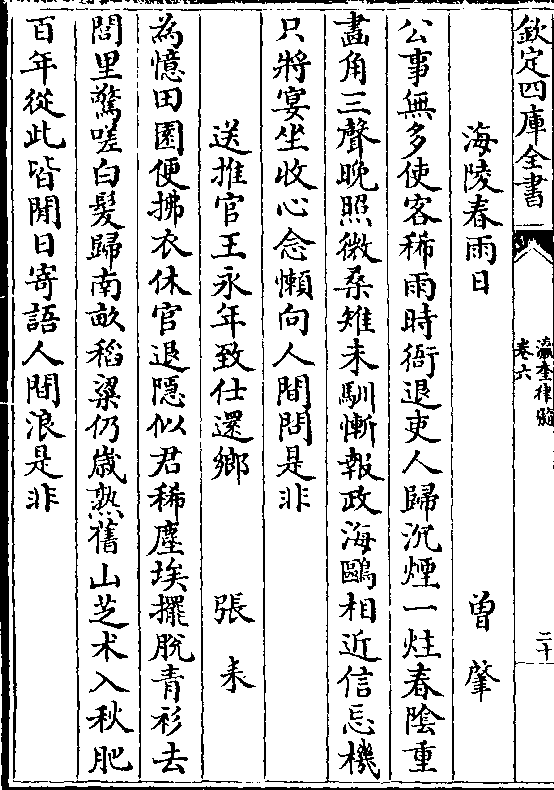 欽定四庫全書
瀛奎律髓
卷六
二十
海陵春雨日 曾肇
公事無多使客稀雨時衙退吏人歸沉煙一炷春陰重
畫角三聲晚照微桑雉未馴慚報政海鷗相近信忘機
只將宴坐收心念懶向人間問是非
送推官王永年致仕還鄉 張耒
為憶田園便拂衣休官退隱似君稀塵埃擺脫青衫去
閭里驚嗟白髮歸南畝稻粱仍歳熟舊山芝术入秋肥
百年從此皆閒日寄語人間浪是非